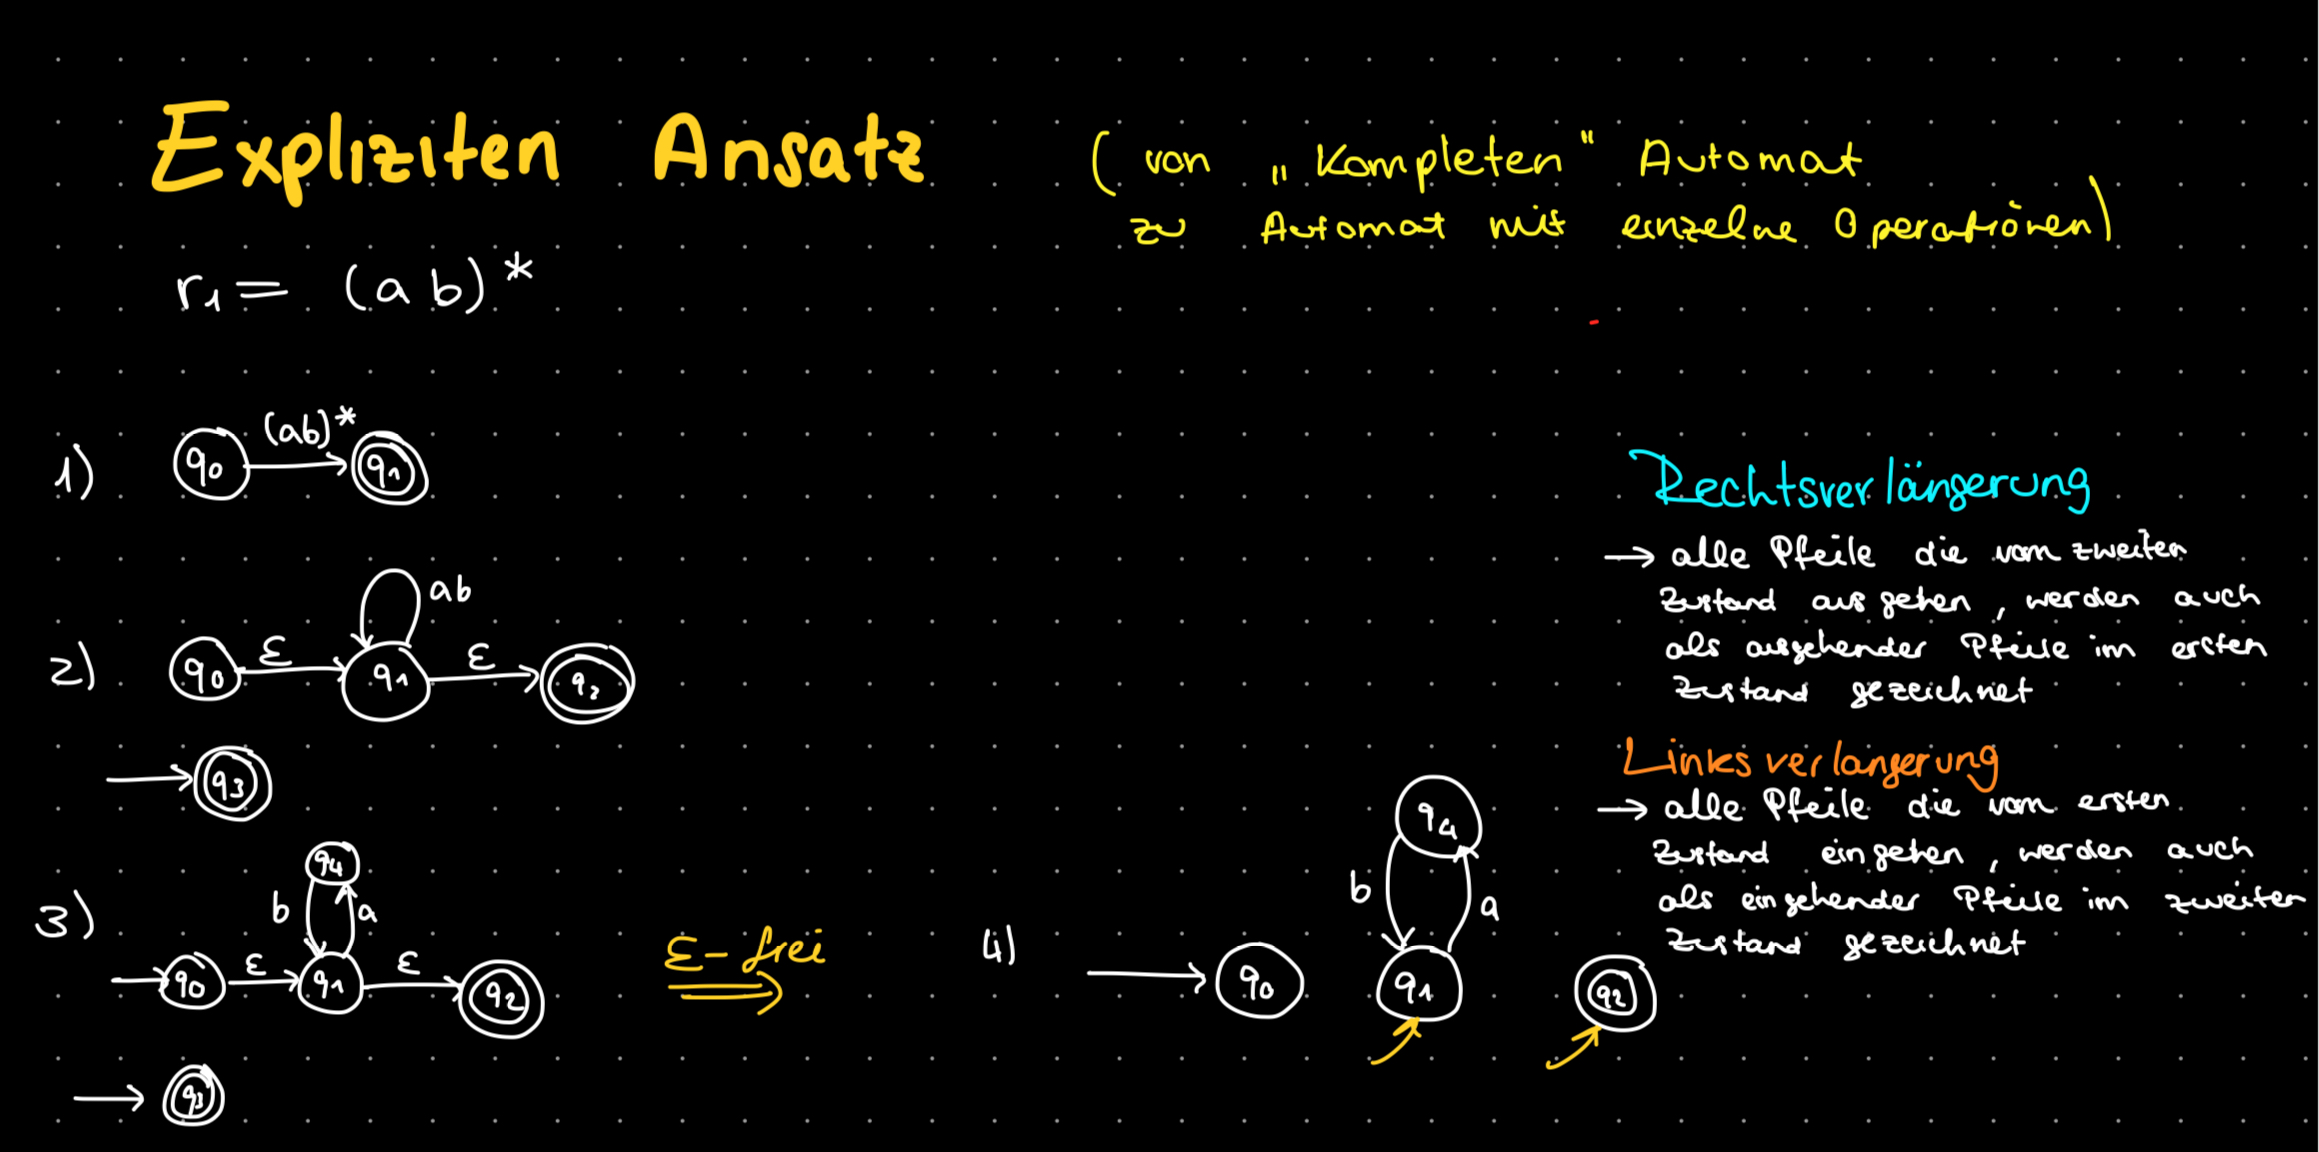 Expliziten Ansatz
( von „Kompleten" Automat
zu Automat mit einzelne Operationen)
r₁ = (ab)*
1) q₀ (ab)* q₁
2) q₀ ε q₁ ab ε q₂
q₃
3) q₀ ε q₁ b a q₄ ε q₂
q₃
ε-frei
4) q₀ q₁ b a q₄ q₂
Rechtsverlängerung
→ alle Pfeile die vom zweiten
Zustand ausgehen, werden auch
als ausgehender Pfeile im ersten
Zustand gezeichnet
Linksverlangerung
→ alle Pfeile die vom ersten
Zustand eingehen, werden auch
als eingehender Pfeile im zweiten
Zustand gezeichnet